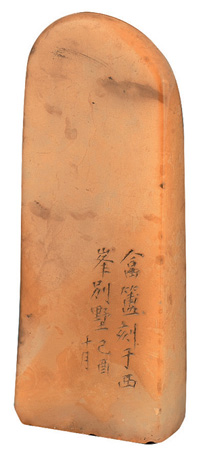 刻于西
峯别墅己酉
十月